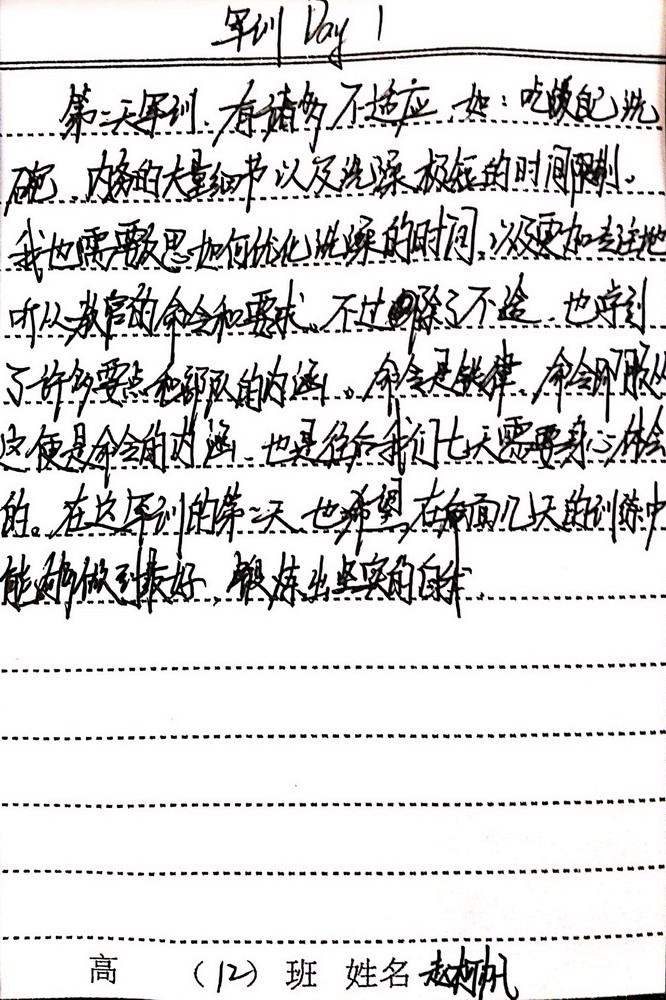 军训 Day 1
第二天军训、有诸多不适应、如：吃饭自己洗
碗、内务的大量细节以及洗澡极短的时间限制。
我也需要反思如何优化洗澡的时间、以及更加专注地
听从教官的命令和要求。不过除了不适、也学到
了许多要点和部队的内涵。命令是铁律、命令即服从
这便是命令的内涵、也是往后我们七天需要身心体会
的。在这军训的第二天、也希望在后面几天的训练中
能够做到最好、锻炼出坚实的自我.
高 （12）班 姓名 赵柯帆